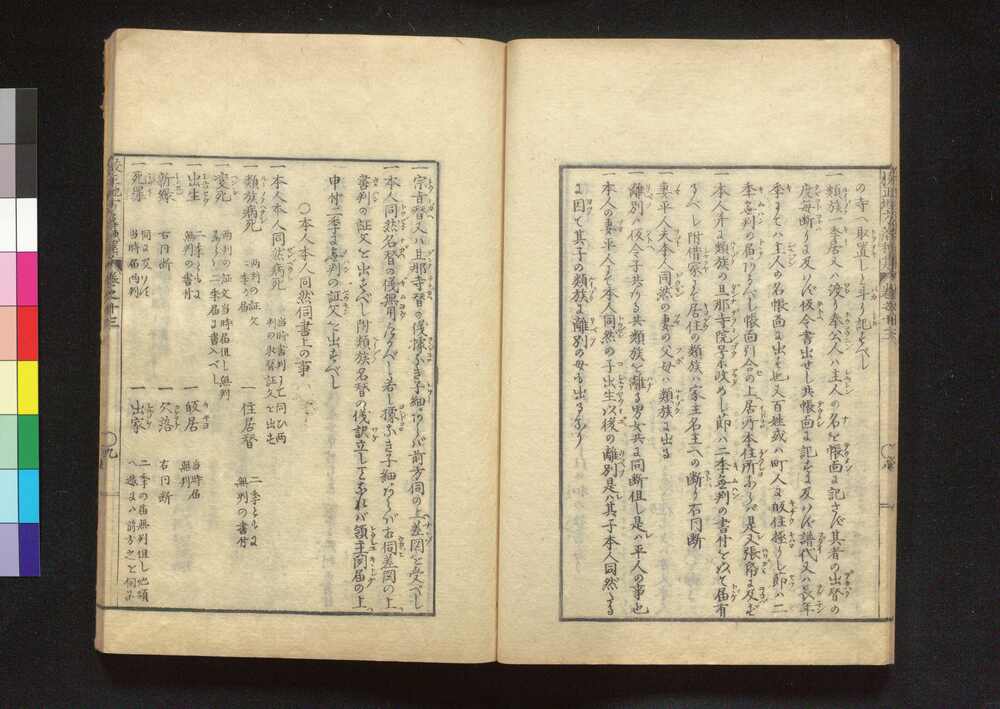 の寺へ取置しと斗り記すべし
一類族一季居又ハ渡り奉公人ハ主人の名を帳面に記さず其者の出替の
度毎断りに及バず仮令書出せし共帳面に記すに及バず譜代又ハ長年
季すてハ主人の名帳面に出す也又百姓或ハ町人に取住極りし節ハ二
季無判の届けなすべし帳面引合の上居所本住所あらバ是又張帋に及ず
一本人并に類族の旦那寺院号等改めし節ハ二季無判の書付を以て届有
るべし附借家して居住の類族ハ家主名主への断り右同断
一妻平人夫本人同然の妻の父母ハ類族に出る
一離別ハ仮令子共ある共類族を離る男女共に同断但し是ハ平人の事也
一本人の妻平人にて本人同然の子出生以後の離別是ハ其子本人同然たる
に因て其子の類族に離別の母も出るなり
一宗旨替又ハ旦那寺替の儀據なき子細あらバ前方伺の上差図を受べし
一本人同然名替の儀無用たるべし若し據なき子細あらバ右伺差図の上
書判の証文を出すべし附類族名替の儀訳立し事なれバ領主聞届の上
申付二季に無判の証文を出すべし
〇本人本人同然伺書上の事
一本人本人同然病死 当時書判にて伺ひ両判の取置証文を出す
一類族病死 両判の証文二季の届 一住居替 二季ともに無判の書付
一変死 両判の証文当時届但し無判ならバ二季届に書入べし
一出生 二季ともに無判の書付 一帰居 当時届無判
一新縁 右同断 一欠落 右同断
一死罪 伺に及バず当時届両判 一出家 二季の届無判但し他領へ遣すハ前方之を伺ふ
巻之十三
九